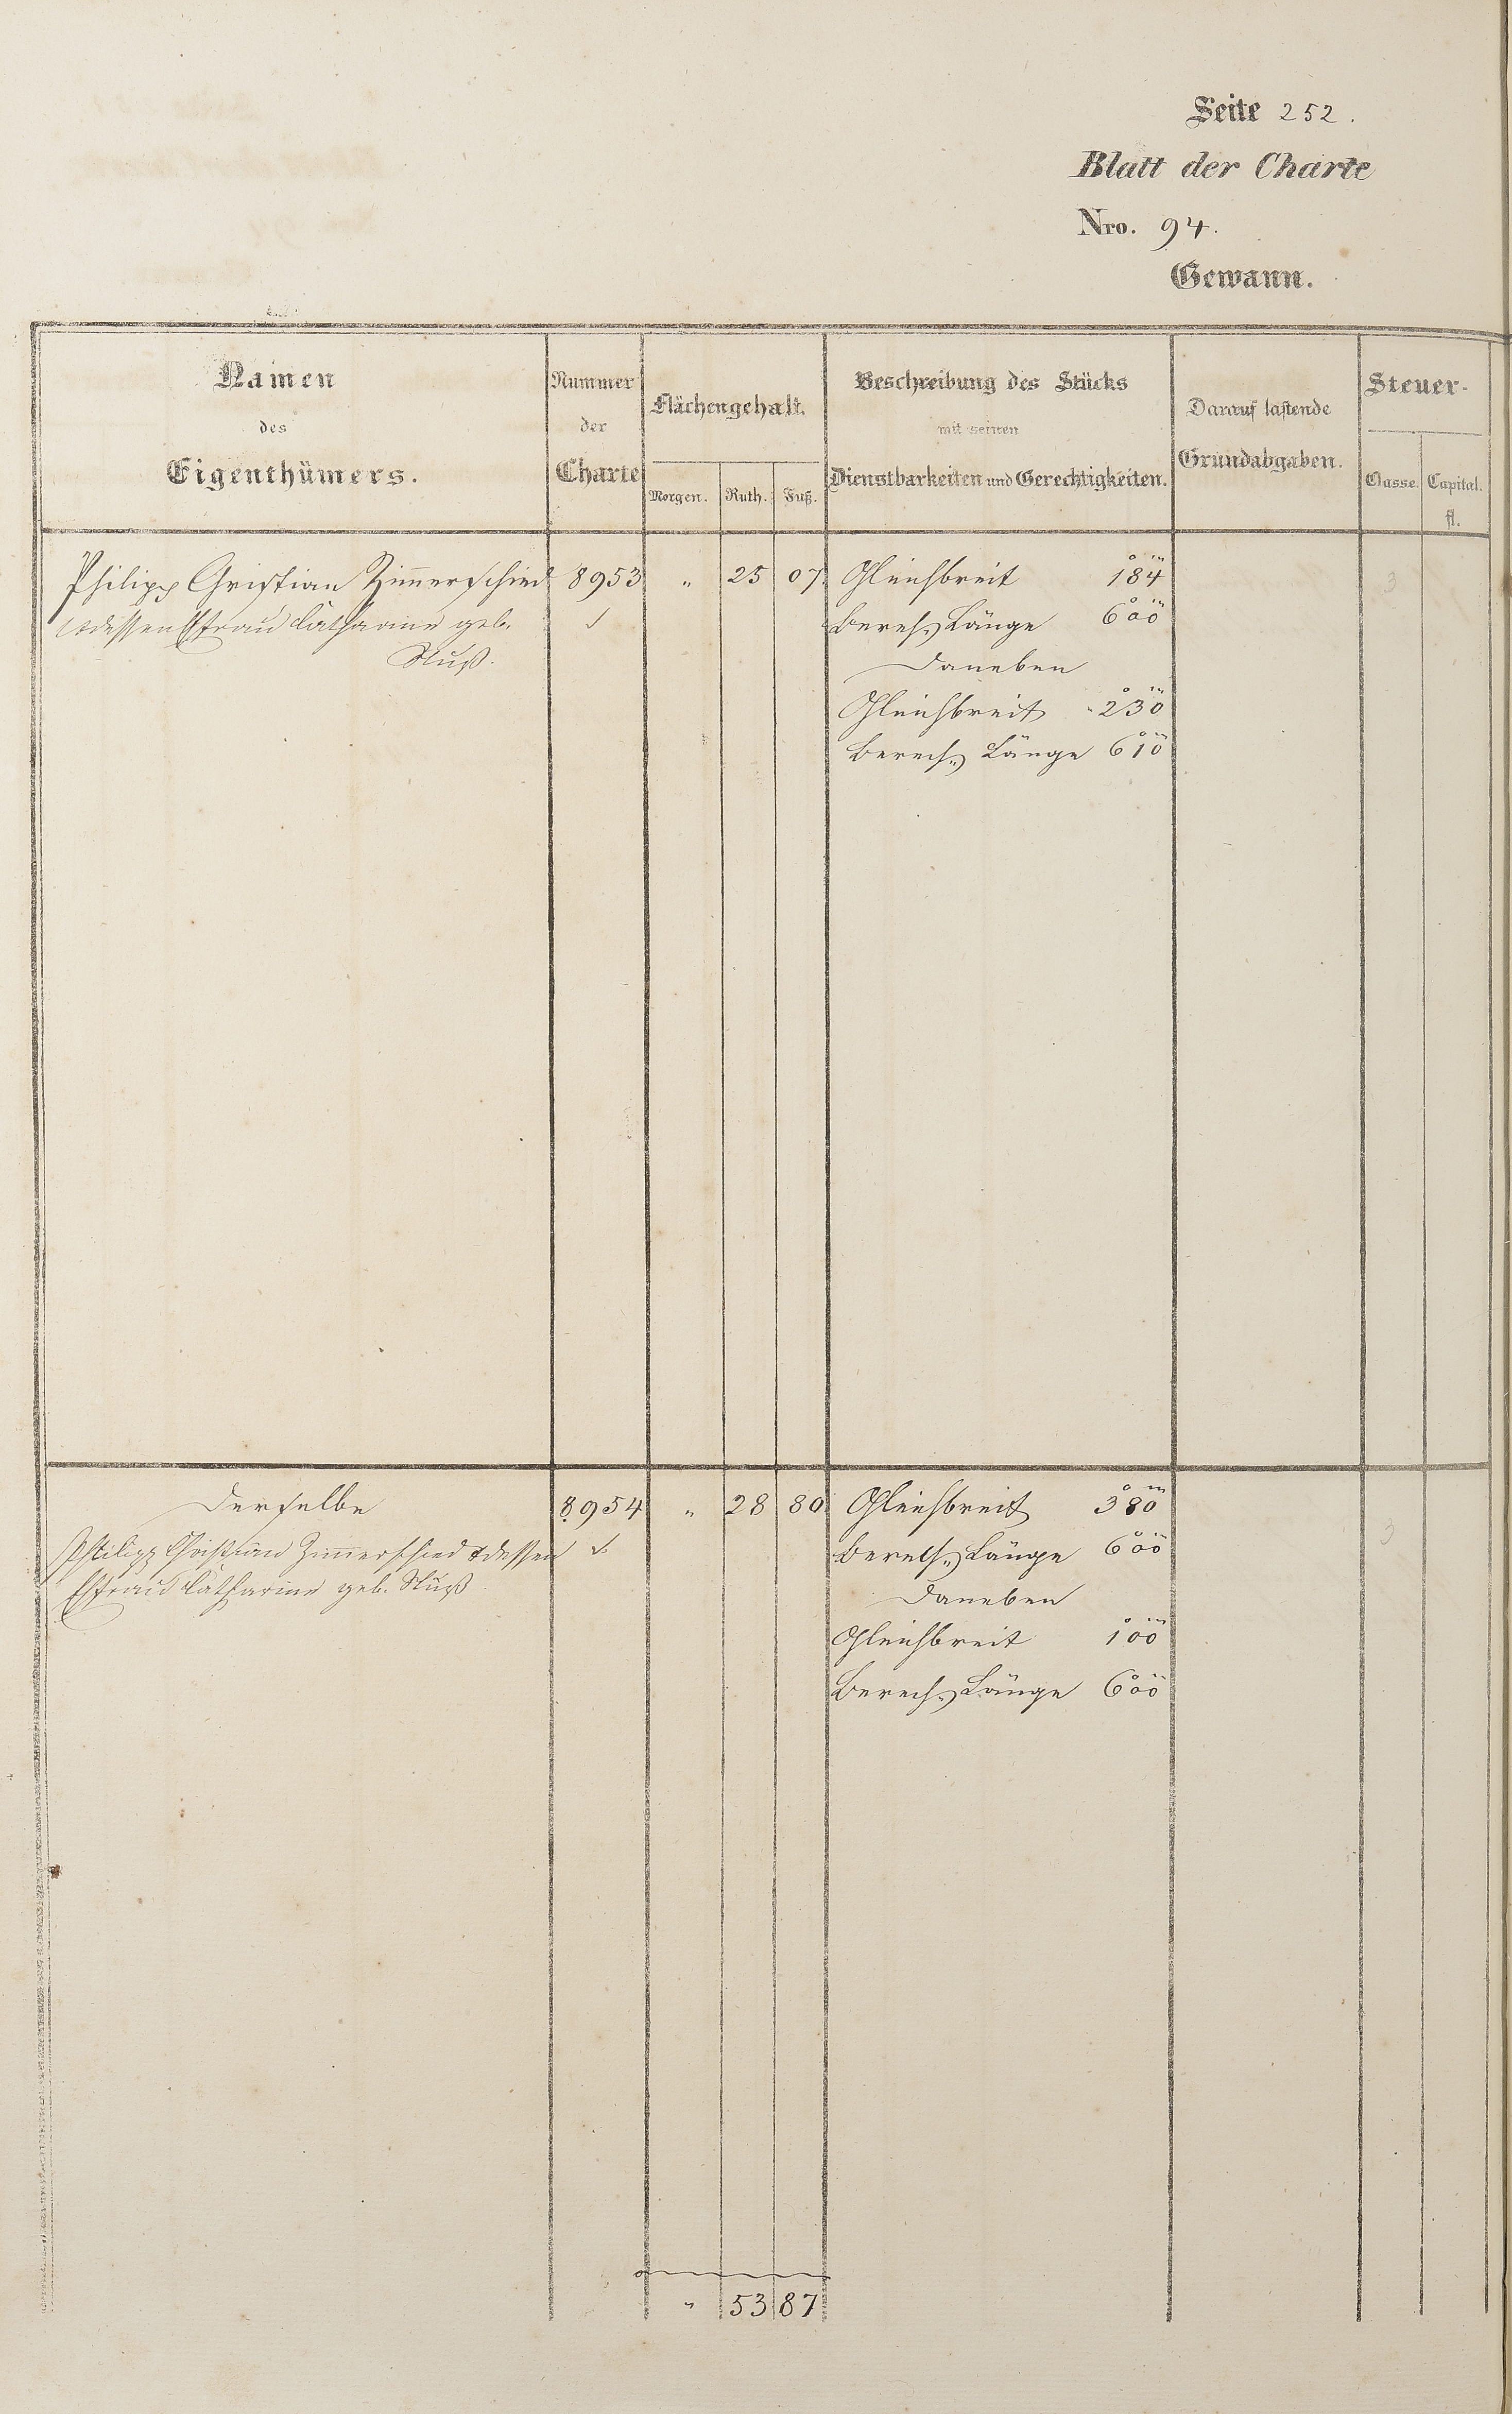 Seite 252.
Blatt der Charte
Nro. 94.
Gewann.
Namen des Eigenthümers.
Nummer der Charte
Flächengehalt.
Morgen. Ruth. Fuß.
Beschreibung des Stücks mit seinen Dienstbarkeiten und Gerechtigkeiten.
Darauf lastende Grundabgaben.
Steuer-
Classe. Capital. fl.
Philipp Christian Zimmerschied 8953 " 25 07 Gleichbreit 184 3
& dessen Ehefrau Catharine geb. ✓ Berech. Länge 600
Nuß. Daneben
Gleichbreit 230
Berech. Länge 610
Derselbe 8954 " 28 80 Gleichbreit 380 3
Philipp Christian Zimmerschied & dessen ✓ Berech. Länge 600
Ehefrau Catharine geb. Nuß Daneben
Gleichbreit 100
Berech. Länge 600
" 53 87